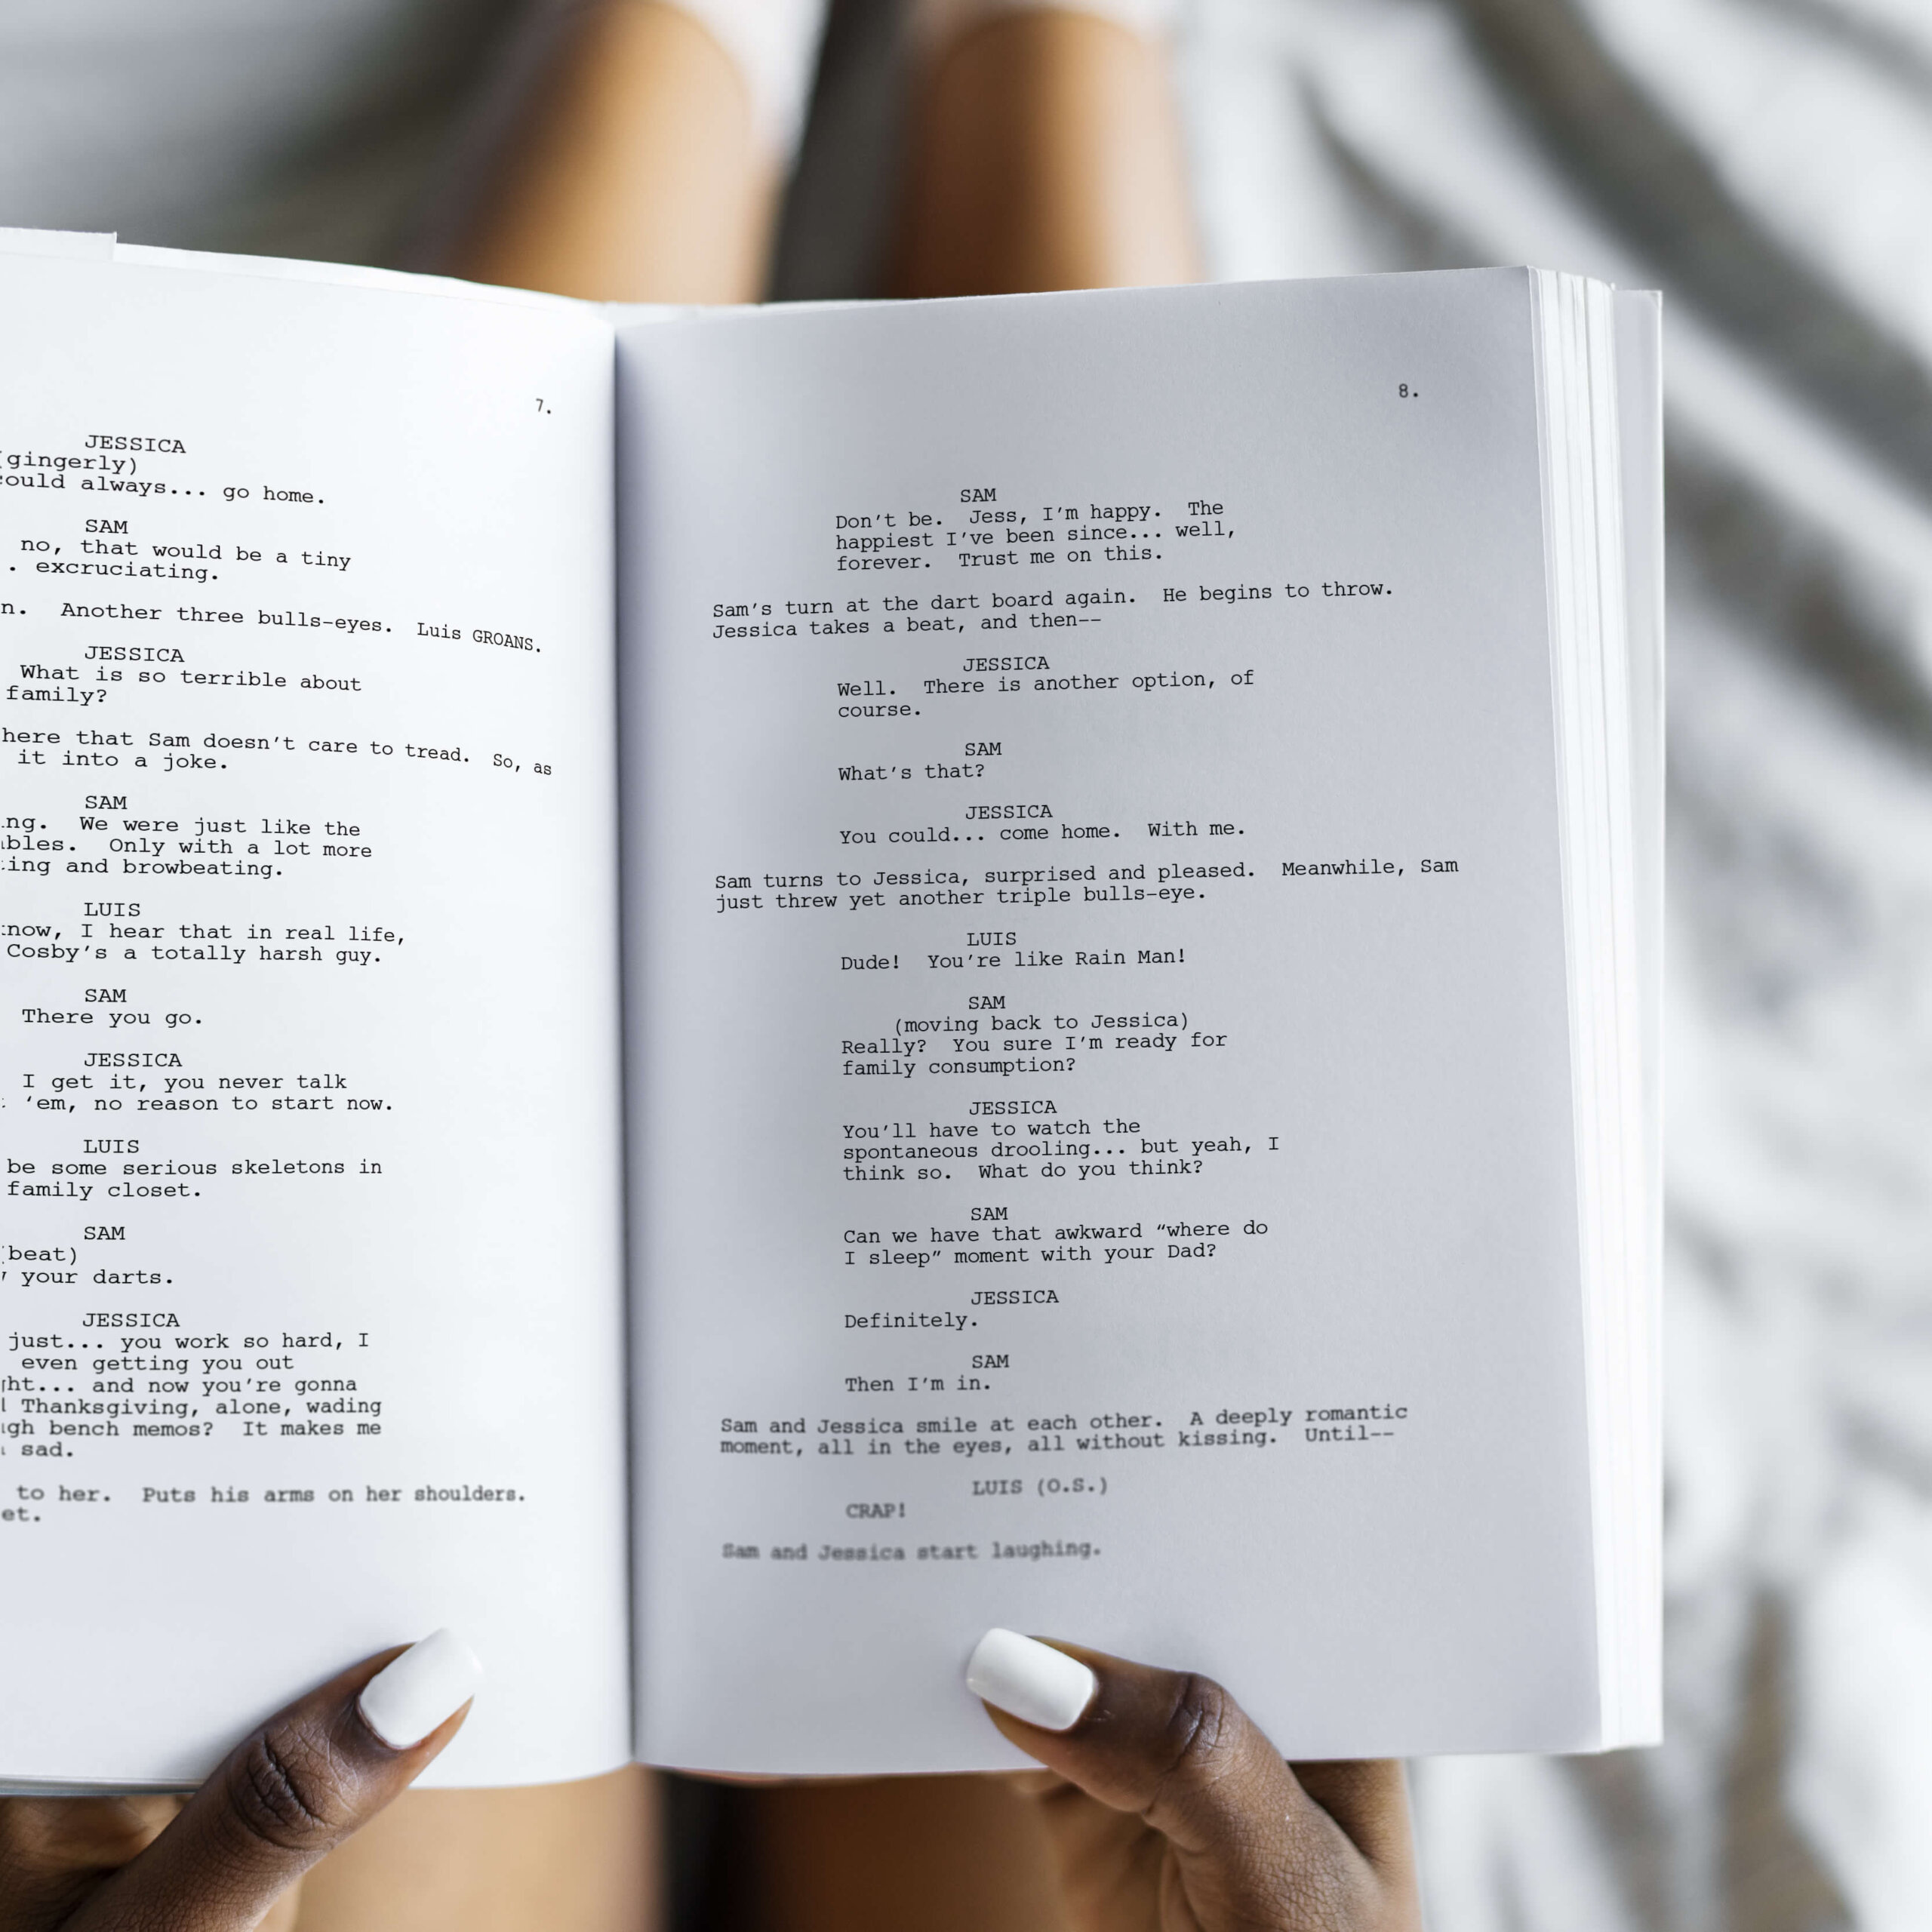 7.
JESSICA
(gingerly)
could always... go home.
SAM
no, that would be a tiny
. excruciating.
n. Another three bulls-eyes. Luis GROANS.
JESSICA
What is so terrible about
family?
here that Sam doesn't care to tread. So, as
it into a joke.
SAM
ng. We were just like the
bles. Only with a lot more
ing and browbeating.
LUIS
know, I hear that in real life,
Cosby's a totally harsh guy.
SAM
There you go.
JESSICA
I get it, you never talk
'em, no reason to start now.
LUIS
be some serious skeletons in
family closet.
SAM
(beat)
your darts.
JESSICA
just... you work so hard, I
even getting you out
ht... and now you're gonna
Thanksgiving, alone, wading
gh bench memos? It makes me
sad.
to her. Puts his arms on her shoulders.
et.
8.
SAM
Don't be. Jess, I'm happy. The
happiest I've been since... well,
forever. Trust me on this.
Sam's turn at the dart board again. He begins to throw.
Jessica takes a beat, and then--
JESSICA
Well. There is another option, of
course.
SAM
What's that?
JESSICA
You could... come home. With me.
Sam turns to Jessica, surprised and pleased. Meanwhile, Sam
just threw yet another triple bulls-eye.
LUIS
Dude! You're like Rain Man!
SAM
(moving back to Jessica)
Really? You sure I'm ready for
family consumption?
JESSICA
You'll have to watch the
spontaneous drooling... but yeah, I
think so. What do you think?
SAM
Can we have that awkward “where do
I sleep” moment with your Dad?
JESSICA
Definitely.
SAM
Then I'm in.
Sam and Jessica smile at each other. A deeply romantic
moment, all in the eyes, all without kissing. Until--
LUIS (O.S.)
CRAP!
Sam and Jessica start laughing.